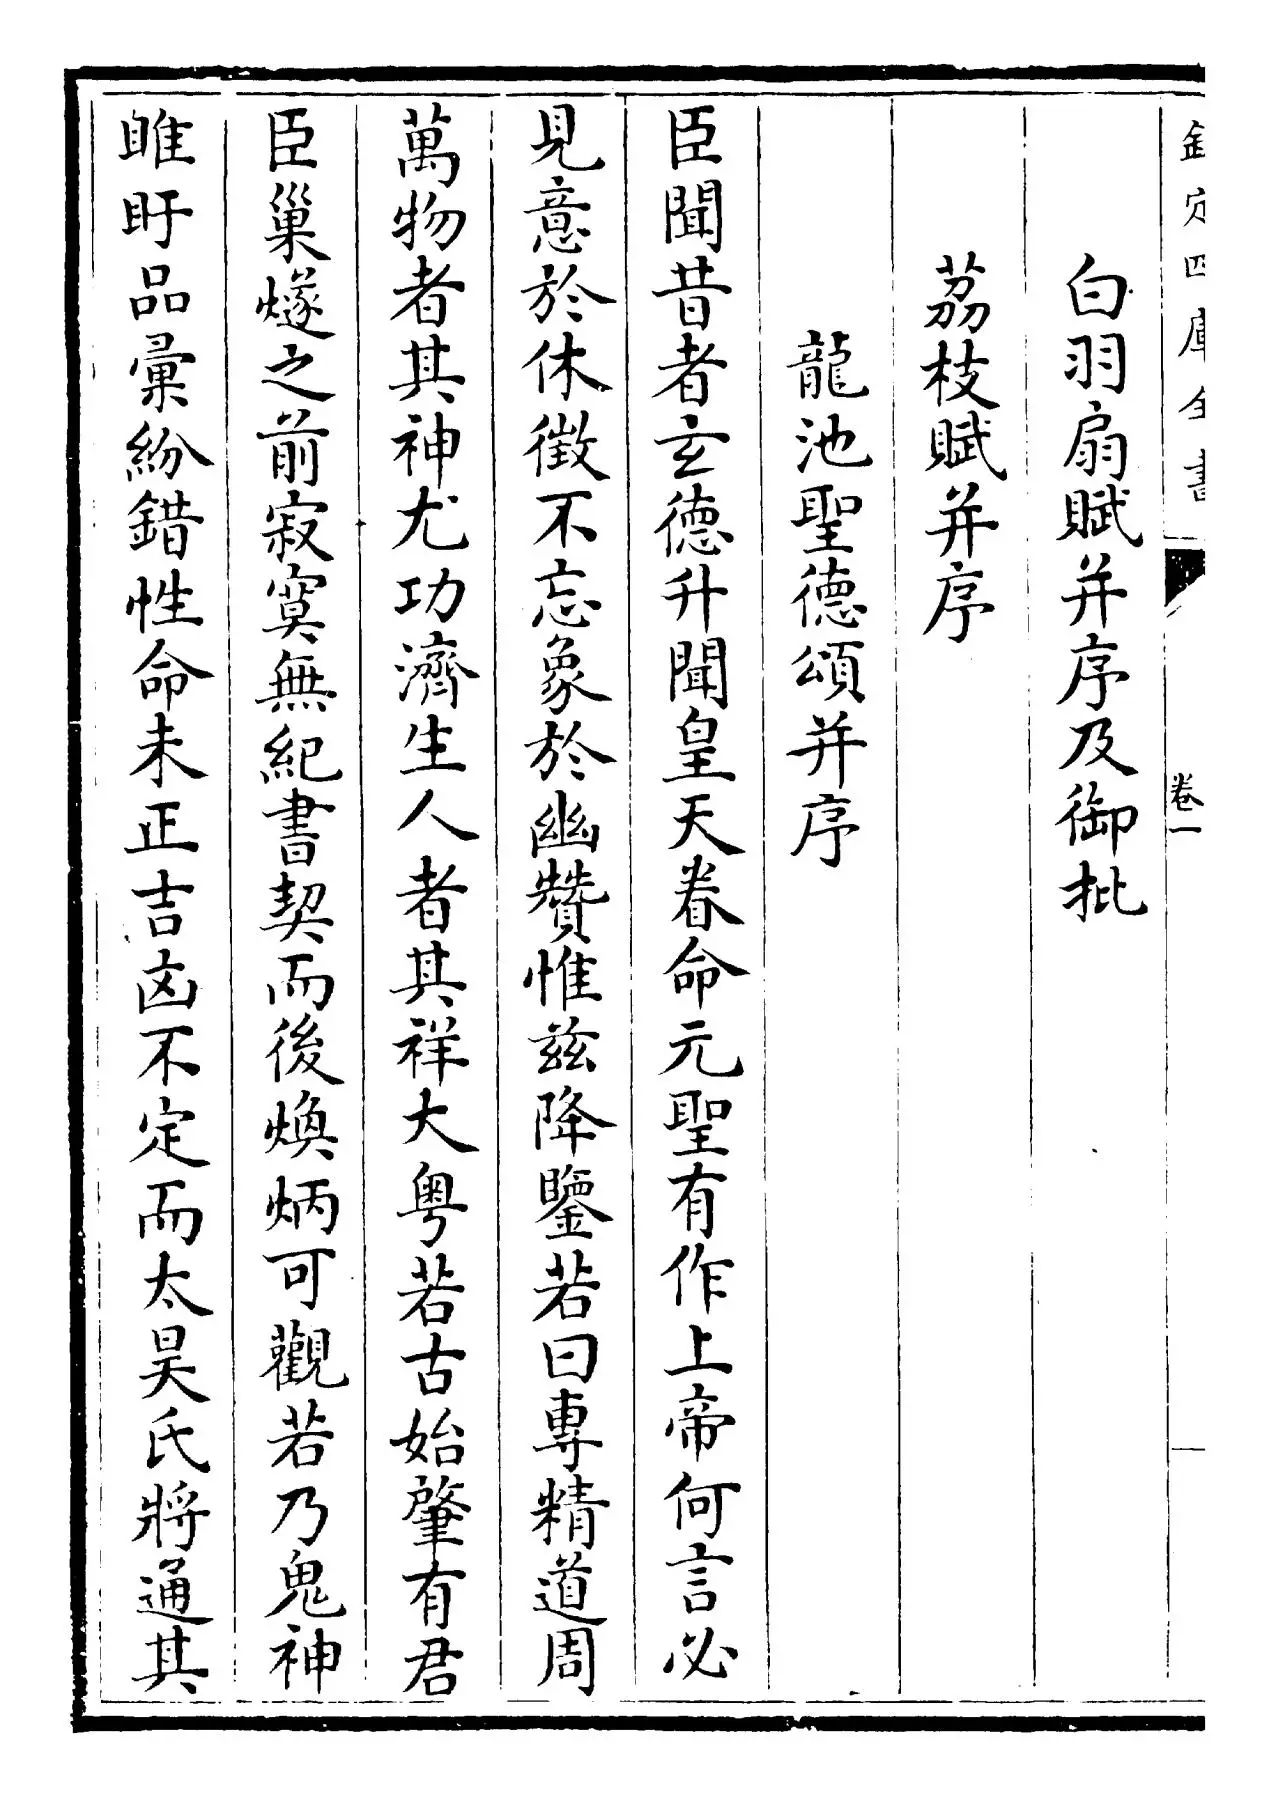 欽定四庫全書
卷一
白羽扇賦并序及御批
荔枝賦并序
龍池聖德頌并序
臣聞昔者玄德升聞皇天眷命元聖有作上帝何言必
見意於休徵不忘象於幽贊惟茲降鑒若曰專精道周
萬物者其神尤功濟生人者其祥大粵若古始肇有君
臣巢燧之前寂寞無紀書契而後煥炳可觀若乃鬼神
睢盱品彙紛錯性命未正吉凶不定而太昊氏將通其